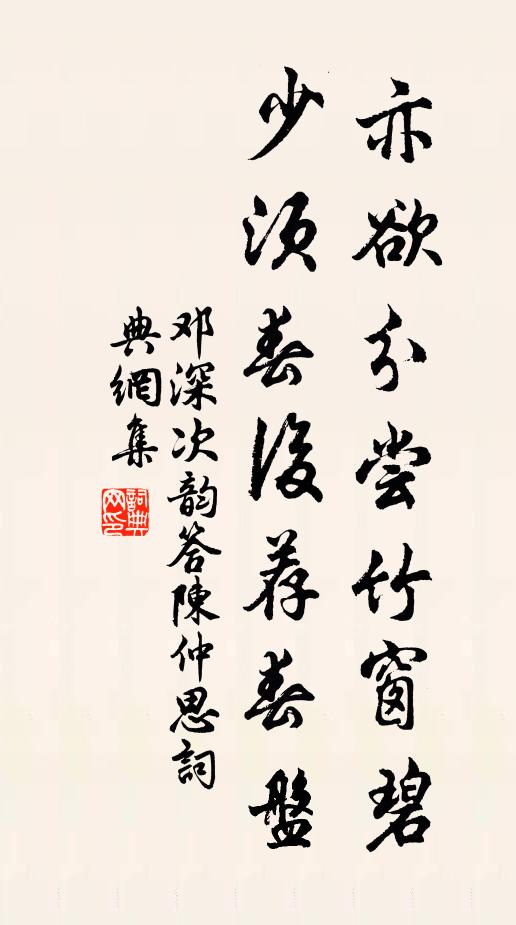 亦欲分尝竹窗碧
少须春後荐春盤
邓深次韵答陳仲思詞
典網集
詞典网印